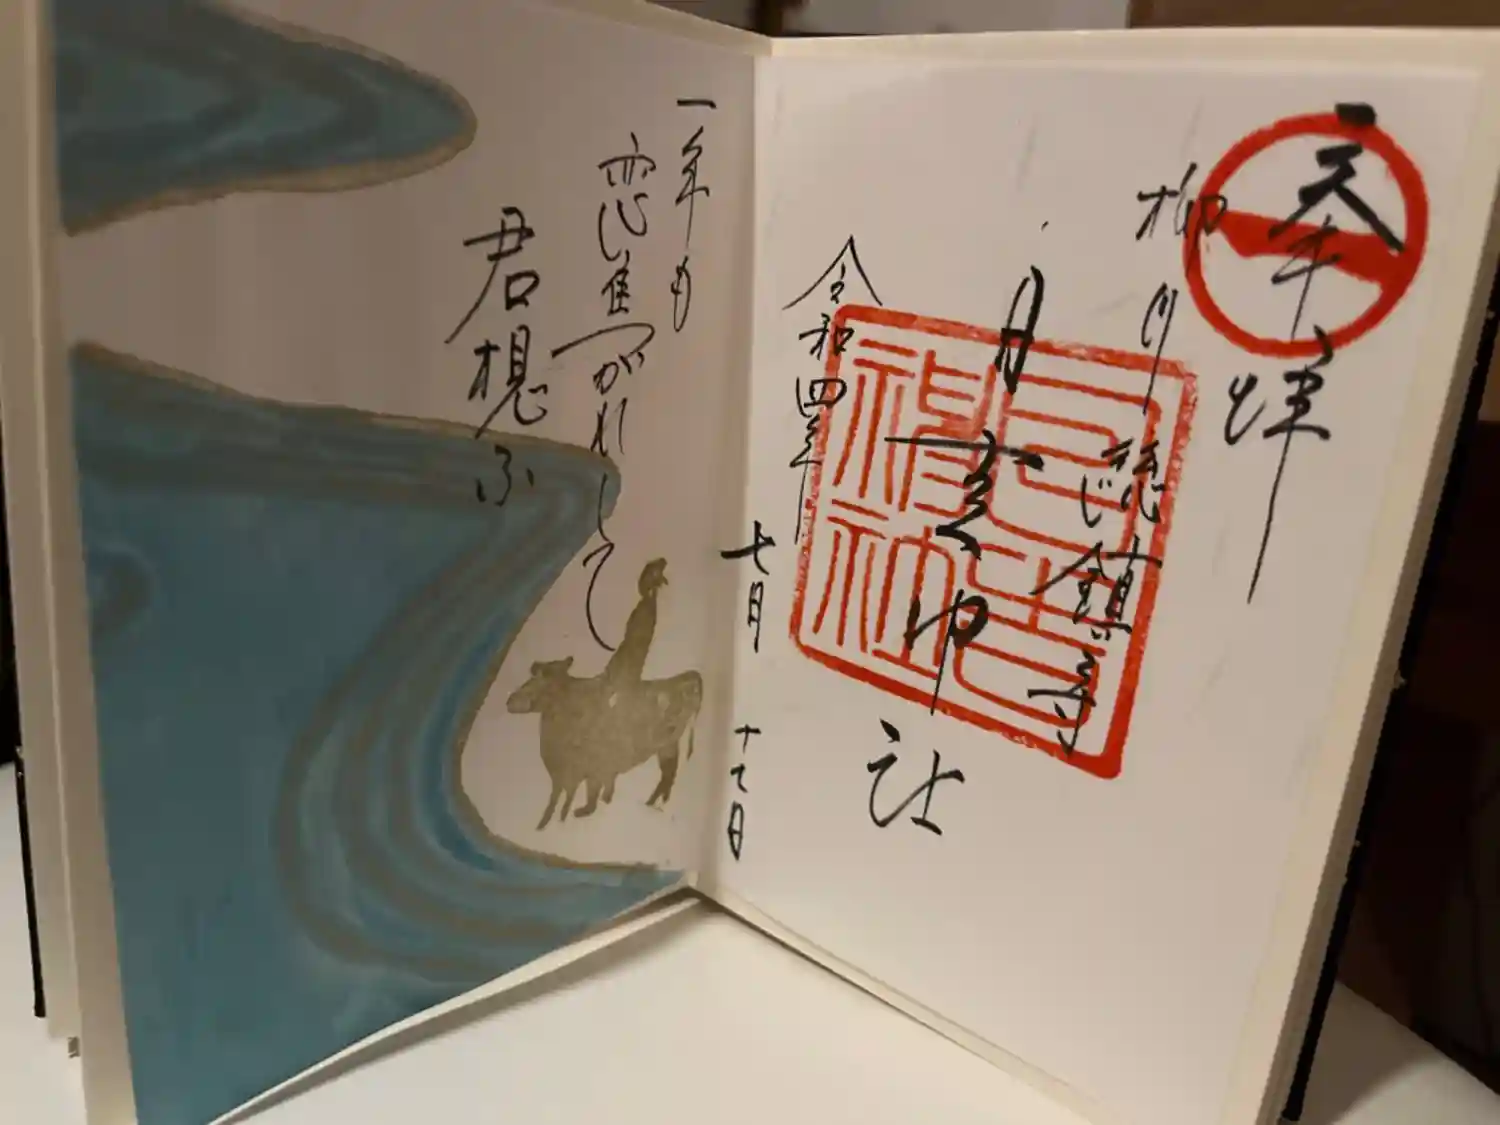 奉拝
柳川総鎮守
日吉神社
令和四年七月十七日
一年も
恋焦がれして
君想ふ
日吉神社